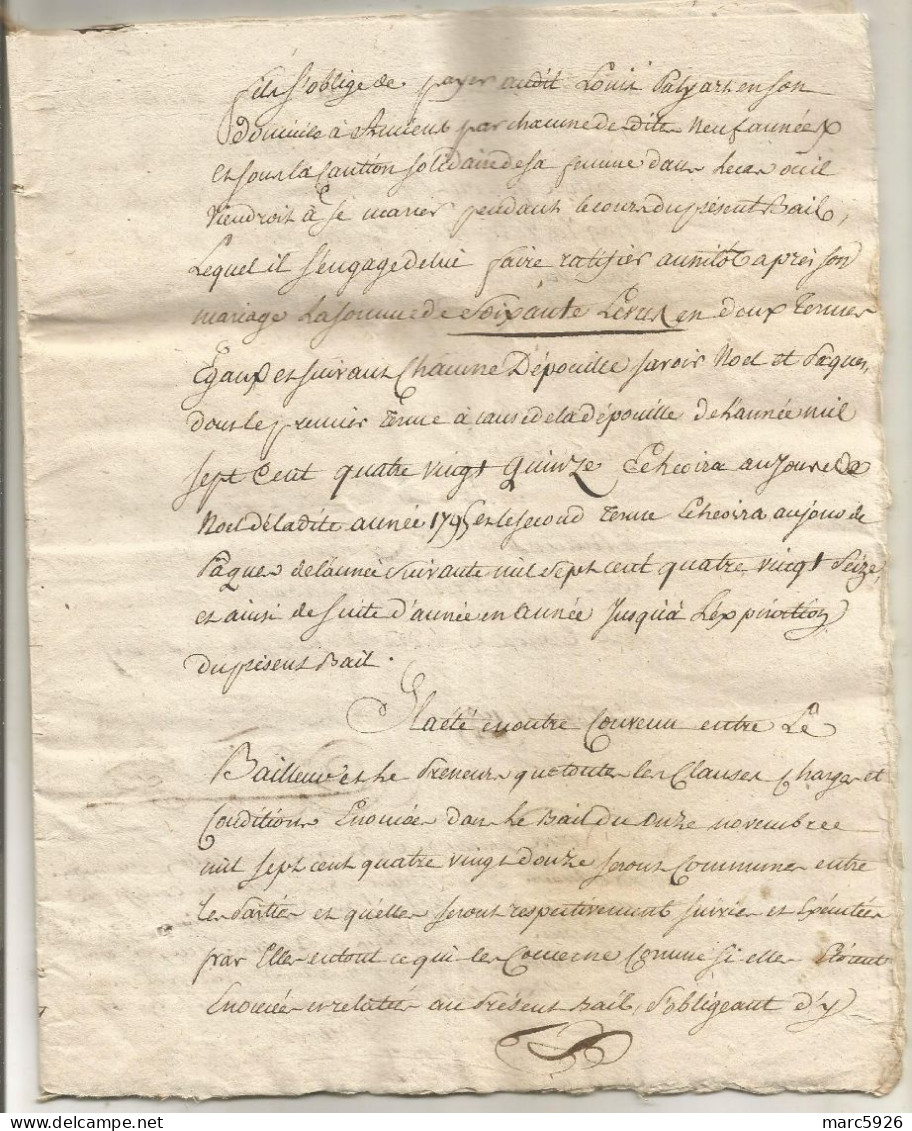 fils s'oblige de payer audit Louis Patyart en son
domicile à Amiens par chacune desdittes neuf années
et sous la Caution solidaire de sa femme dans le cas où il
viendroit à se marier pendant le cours du présent Bail,
Lequel il s'engage de lui faire ratifier aussitôt après son
mariage La somme de Soixante Livres en deux termes
Egaux et suivant Chacune Dépouille savoir Noel et Paques,
dont le premier terme à cause de la dépouille de l'année mil
sept Cent quatre vingt Quinze Echeoira au Jour de
Noel de ladite année 1795 et le second terme Echeoira au jour de
Paques de l'année suivante mil sept cent quatre vingt Seize,
et ainsi de suite d'année en année Jusqu'à L'expiration
du présent Bail.
Il a été en outre Convenu entre Le
Bailleur et Le Preneur que toutes les Clauses Charges et
Conditions Enoncées dans le Bail du Onze novembre
mil sept cent quatre vingt douze seront Communes entre
les Parties et qu'elles seront respectivement suivies et Exécutées
par Elles en tout ce qui les Concerne Comme si elles Etoient
Enoncées et relatées au Présent Bail, s'obligeant d'y
marc5926